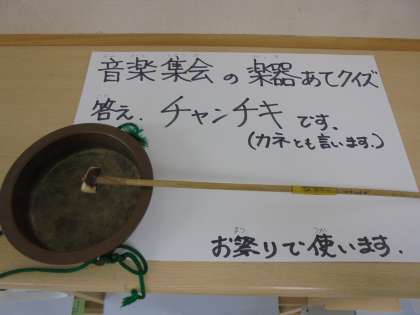 音楽集会の楽器あてクイズ
答え、チャンチキです。
(カネとも言います。)
お祭りで使います。